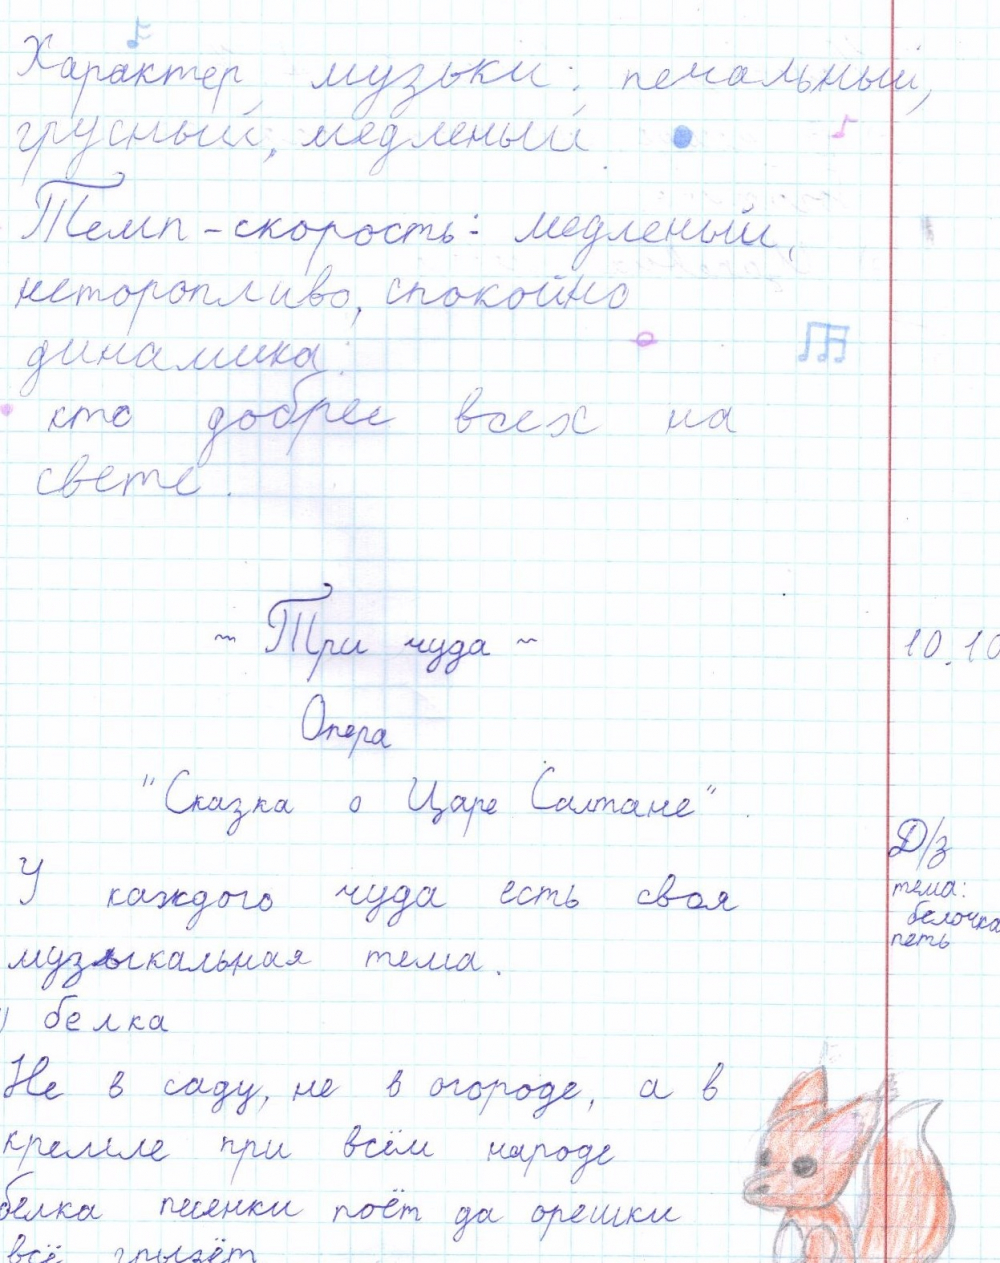 Характер музыки: печальный,
грусный, медленый
Темп - скорость: медленый,
неторопливо, спокойно
динамика:
кто добрее всех на
свете.
~ Три чуда ~
10.10
Опера
"Сказка о Царе Салтане".
Д/з
тема:
белочка
петь
У каждого чуда есть своя
музыкальная тема.
) белка
Не в саду, не в огороде, а в
кремле при всём народе
белка песенки поёт да орешки
всё грызёт